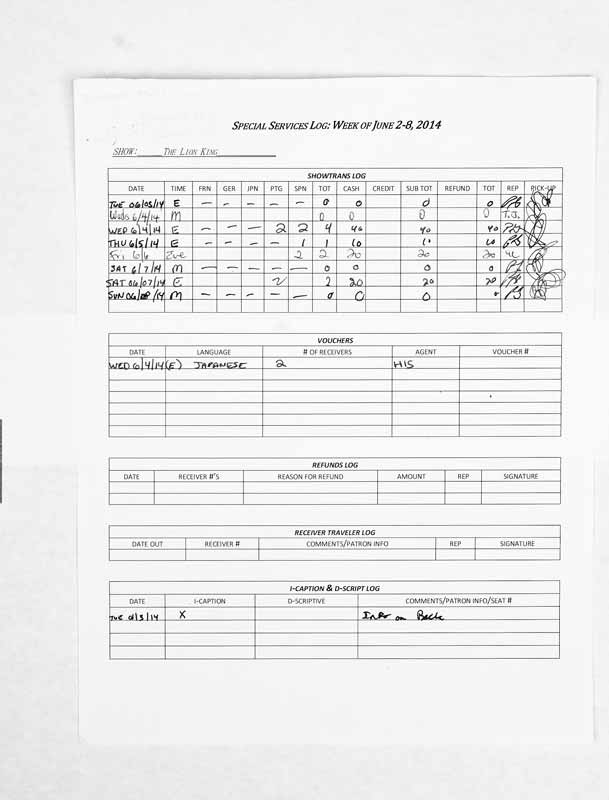 SPECIAL SERVICES LOG: WEEK OF JUNE 2-8, 2014
SHOW: THE LION KING
SHOWTRANS LOG
DATE TIME FRN GER JPN PTG SPN TOT CASH CREDIT SUB TOT REFUND TOT REP PICK-UP
TUE 06/03/14 E — — — — — 0 0 0 0
Weds 6/4/14 M 0 0 0 0 T.J.
WED 6/4/14 E — — — 2 2 4 40 40 40
THU 6/5/14 E — — — — 1 1 10 10 10
Fri 6/6 Eve 2 2 20 20 20
SAT 6/7/14 M — — — — — 0 0 0 0
SAT 06/07/14 E 2 2 20 20 20
SUN 06/08/14 M — — — — — 0 0 0 0
VOUCHERS
DATE LANGUAGE # OF RECEIVERS AGENT VOUCHER #
WED 6/4/14(E) JAPANESE 2 HIS
REFUNDS LOG
DATE RECEIVER #'S REASON FOR REFUND AMOUNT REP SIGNATURE
RECEIVER TRAVELER LOG
DATE OUT RECEIVER # COMMENTS/PATRON INFO REP SIGNATURE
I-CAPTION & D-SCRIPT LOG
DATE I-CAPTION D-SCRIPTIVE COMMENTS/PATRON INFO/SEAT #
TUE 6/3/14 X Info on Back